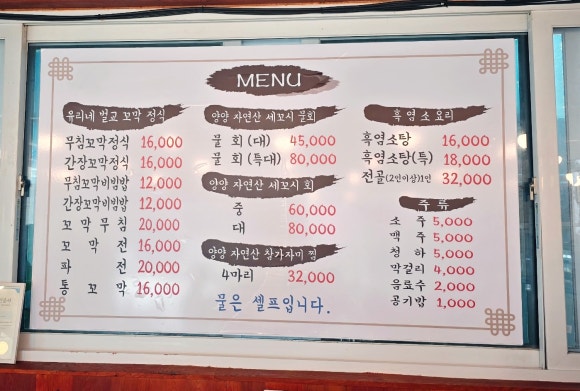 MENU
유리네 벌교 꼬막 정식
무침꼬막정식 16,000
간장꼬막정식 16,000
무침꼬막비빔밥 12,000
간장꼬막비빔밥 12,000
꼬 막 무 침 20,000
꼬 막 전 16,000
파 전 20,000
통 꼬 막 16,000
양양 자연산 세꼬시 물회
물 회 (대) 45,000
물 회 (특대) 80,000
양양 자연산 세꼬시 회
중 60,000
대 80,000
양양 자연산 참가자미 찜
4마리 32,000
물은 셀프입니다.
흑 염 소 요리
흑염소탕 16,000
흑염소탕(특) 18,000
전골(2인이상)1인 32,000
주 류
소 주 5,000
맥 주 5,000
청 하 5,000
막걸리 4,000
음료수 2,000
공기밥 1,000